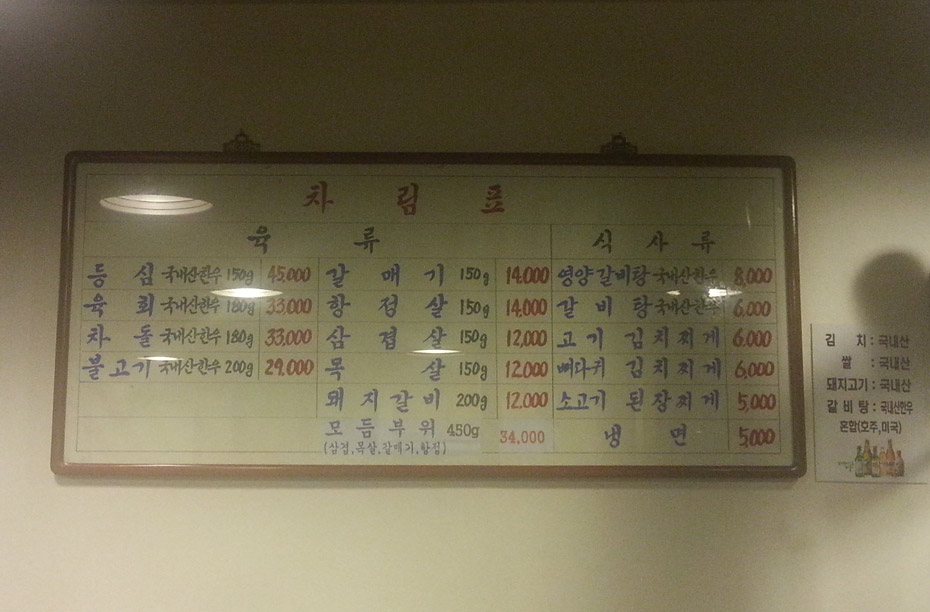 차림표
육류
식사류
등심 국내산한우 150g 45,000 갈매기 150g 14,000 영양갈비탕 국내산한우 8,000
육회 국내산한우 180g 33,000 항정살 150g 14,000 갈비탕 국내산한우 6,000
차돌 국내산한우 180g 33,000 삼겹살 150g 12,000 고기김치찌게 6,000
불고기 국내산한우 200g 29,000 목살 150g 12,000 뼈다귀김치찌게 6,000
돼지갈비 200g 12,000 소고기된장찌게 5,000
모듬부위 450g 34,000 냉면 5,000
(삼겹,목살,갈매기,항정)
김치 : 국내산
쌀 : 국내산
돼지고기 : 국내산
갈비탕 : 국내산한우
혼합(호주,미국)